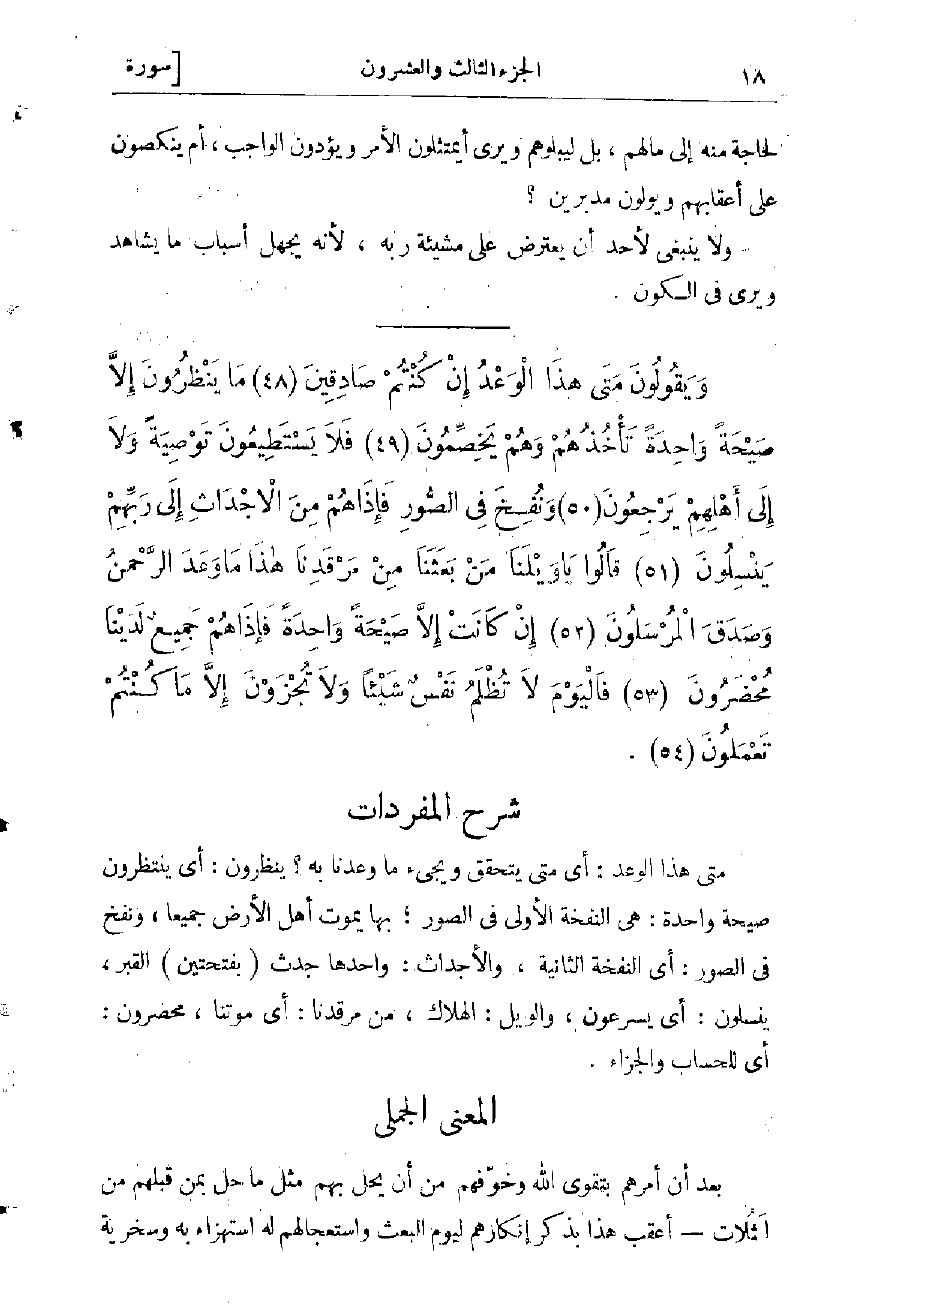 ١٨ الجزء الثالث والعشرون [سورة
لحاجة منه إلى مالهم ، بل ليبلوهم ويرى أيمتثلون الأمر ويؤدون الواجب ، أم ينكصون
على أعقابهم ويولون مدبرين ؟
ولا ينبغى لأحد أن يعترض على مشيئة ربه ، لأنه يجهل أسباب ما يشاهد
ويرى فى الكون .
وَيَقُولُونَ مَتَى هٰذَا الْوَعْدُ إِنْ كُنْتُمْ صَادِقِينَ (٤٨) مَا يَنْظُرُونَ إِلاَّ
صَيْحَةً وَاحِدَةً تَأْخُذُهُمْ وَهُمْ يَخِصِّمُونَ (٤٩) فَلاَ يَسْتَطِيعُونَ تَوْصِيَةً وَلاَ
إِلَى أَهْلِهِمْ يَرْجِعُونَ (٥٠) وَنُفِخَ فِى الصُّورِ فَإِذَاهُمْ مِنَ الْأَجْدَاثِ إِلَى رَبِّهِمْ
يَنْسِلُونَ (٥١) قَالُوا يَاوَيْلَنَا مَنْ بَعَثَنَا مِنْ مَرْقَدِنَا هٰذَا مَاوَعَدَ الرَّحْمٰنُ
وَصَدَقَ الْمُرْسَلُونَ (٥٢) إِنْ كَانَتْ إِلاَّ صَيْحَةً وَاحِدَةً فَإِذَاهُمْ جَمِيعٌ لَدَيْنَا
مُحْضَرُونَ (٥٣) فَالْيَوْمَ لاَ تُظْلَمُ نَفْسٌ شَيْئًا وَلاَ تُجْزَوْنَ إِلاَّ مَا كُنْتُمْ
تَعْمَلُونَ (٥٤) .
شرح المفردات
متى هذا الوعد : أى متى يتحقق ويجىء ما وعدنا به ؟ ينظرون : أى ينتظرون
صيحة واحدة : هى النفخة الأولى فى الصور ؛ بها يموت أهل الأرض جميعا ، ونفخ
فى الصور : أى النفخة الثانية ، والأجداث : واحدها جدث ( بفتحتين ) القبر ،
ينسلون : أى يسرعون ، والويل : الهلاك ، من مرقدنا : أى موتنا ، محضرون :
أى للحساب والجزاء .
المعنى الجملى
بعد أن أمرهم بتقوى الله وخوّفهم من أن يحل بهم مثل ما حل بمن قبلهم من
المَثُلات — أعقب هذا بذكر إنكارهم ليوم البعث واستعجالهم له استهزاء به وسخرية